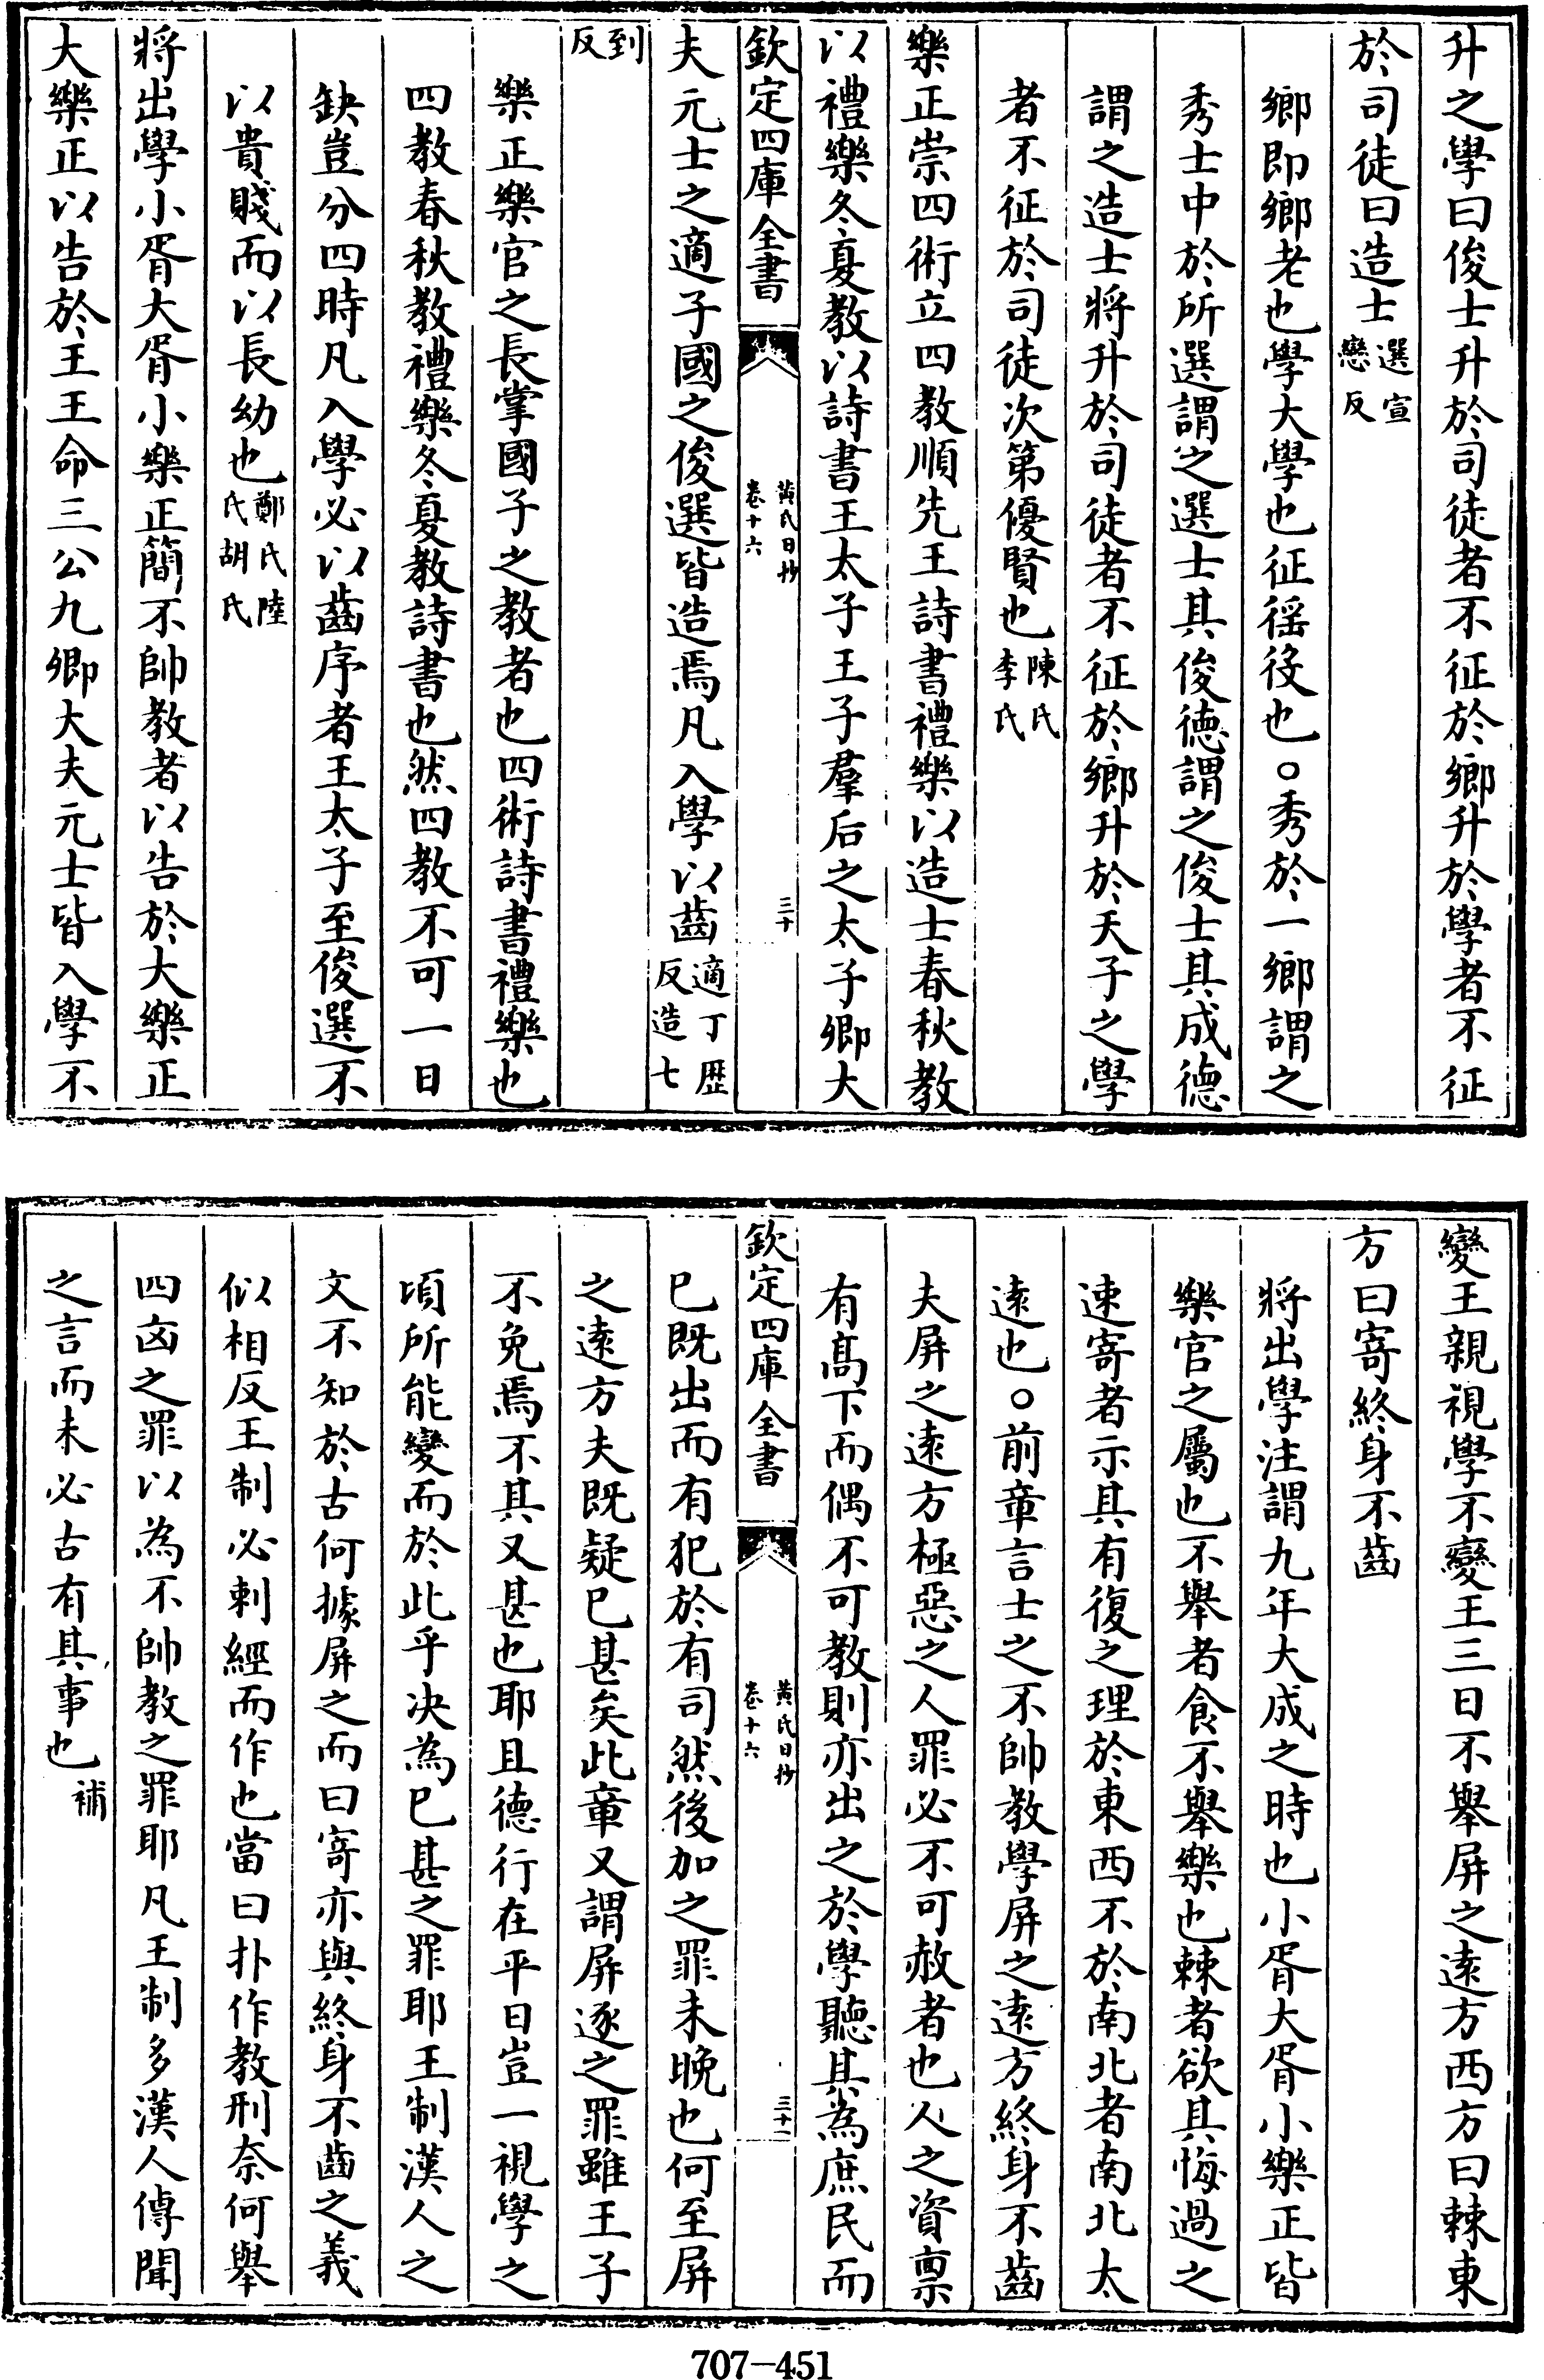 升之學曰俊士升於司徒者不征於鄉升於學者不征
於司徒曰造士選宣戀反
鄉即鄉老也學大學也征徭役也○秀於一鄉謂之
秀士中於所選謂之選士其俊德謂之俊士其成德
謂之造士將升於司徒者不征於鄉升於天子之學
者不征於司徒次第優賢也陳氏李氏
樂正崇四術立四教順先王詩書禮樂以造士春秋教
以禮樂冬夏教以詩書王太子王子羣后之太子卿大
欽定四庫全書 黃氏日抄卷十六 三十
夫元士之適子國之俊選皆造焉凡入學以齒適丁歴反造七
到反
樂正樂官之長掌國子之教者也四術詩書禮樂也
四教春秋教禮樂冬夏教詩書也然四教不可一日
缺豈分四時凡入學必以齒序者王太子至俊選不
以貴賤而以長幼也鄭氏陸氏胡氏
將出學小胥大胥小樂正簡不帥教者以告於大樂正
大樂正以告於王王命三公九卿大夫元士皆入學不
變王親視學不變王三日不舉屏之逺方西方曰棘東
方曰寄終身不齒
將出學注謂九年大成之時也小胥大胥小樂正皆
樂官之屬也不舉者食不舉樂也棘者欲其悔過之
速寄者示其有復之理於東西不於南北者南北太
逺也○前章言士之不帥教學屏之逺方終身不齒
夫屏之逺方極惡之人罪必不可赦者也人之資禀
有髙下而偶不可教則亦出之於學聽其為庶民而
欽定四庫全書 黃氏日抄卷十六 三十一
已既出而有犯於有司然後加之罪未晚也何至屏
之逺方夫既疑已甚矣此章又謂屏逐之罪雖王子
不免焉不其又甚也耶且德行在平日豈一視學之
頃所能變而於此乎决為已甚之罪耶王制漢人之
文不知於古何據屏之而曰寄亦與終身不齒之義
似相反王制必刺經而作也當曰扑作教刑奈何舉
四凶之罪以為不帥教之罪耶凡王制多漢人傳聞
之言而未必古有其事也補
707-451